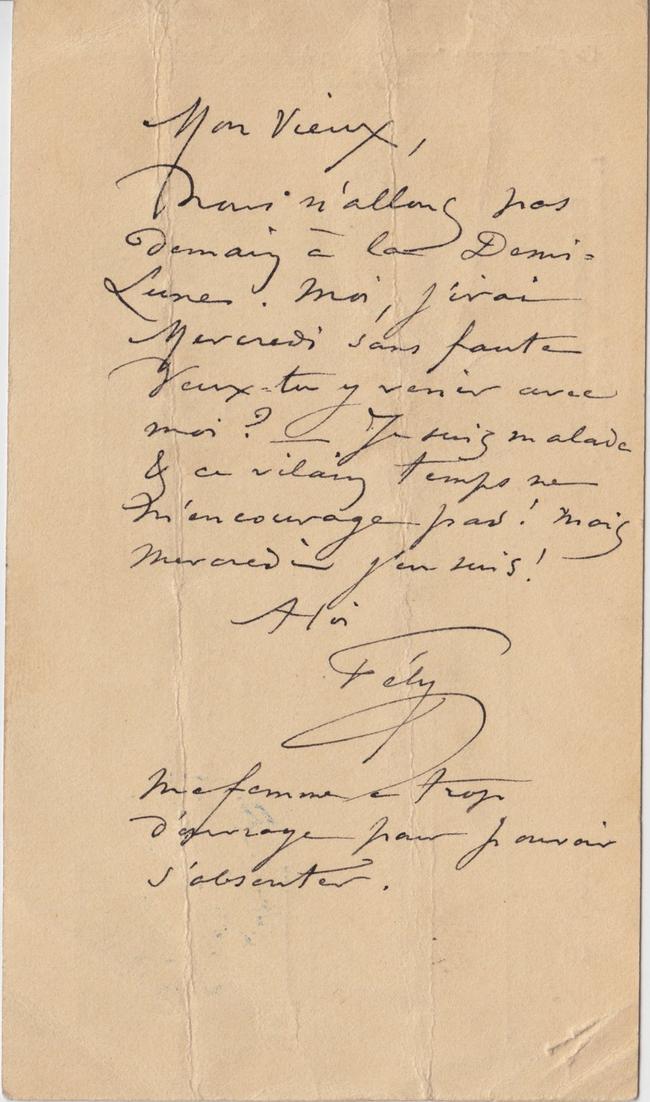 Mon Vieux,
Nous n'allons pas
demain à la Demi-
Lune. Moi, j'irai
Mercredi sans faute
Veux-tu y venir avec
moi ? — Je suis malade
& ce vilain temps ne
m'encourage pas ! mais
mercredi — j'en suis !
A toi
Fély
Ma femme a trop
d'ouvrage pour pouvoir
s'absenter.